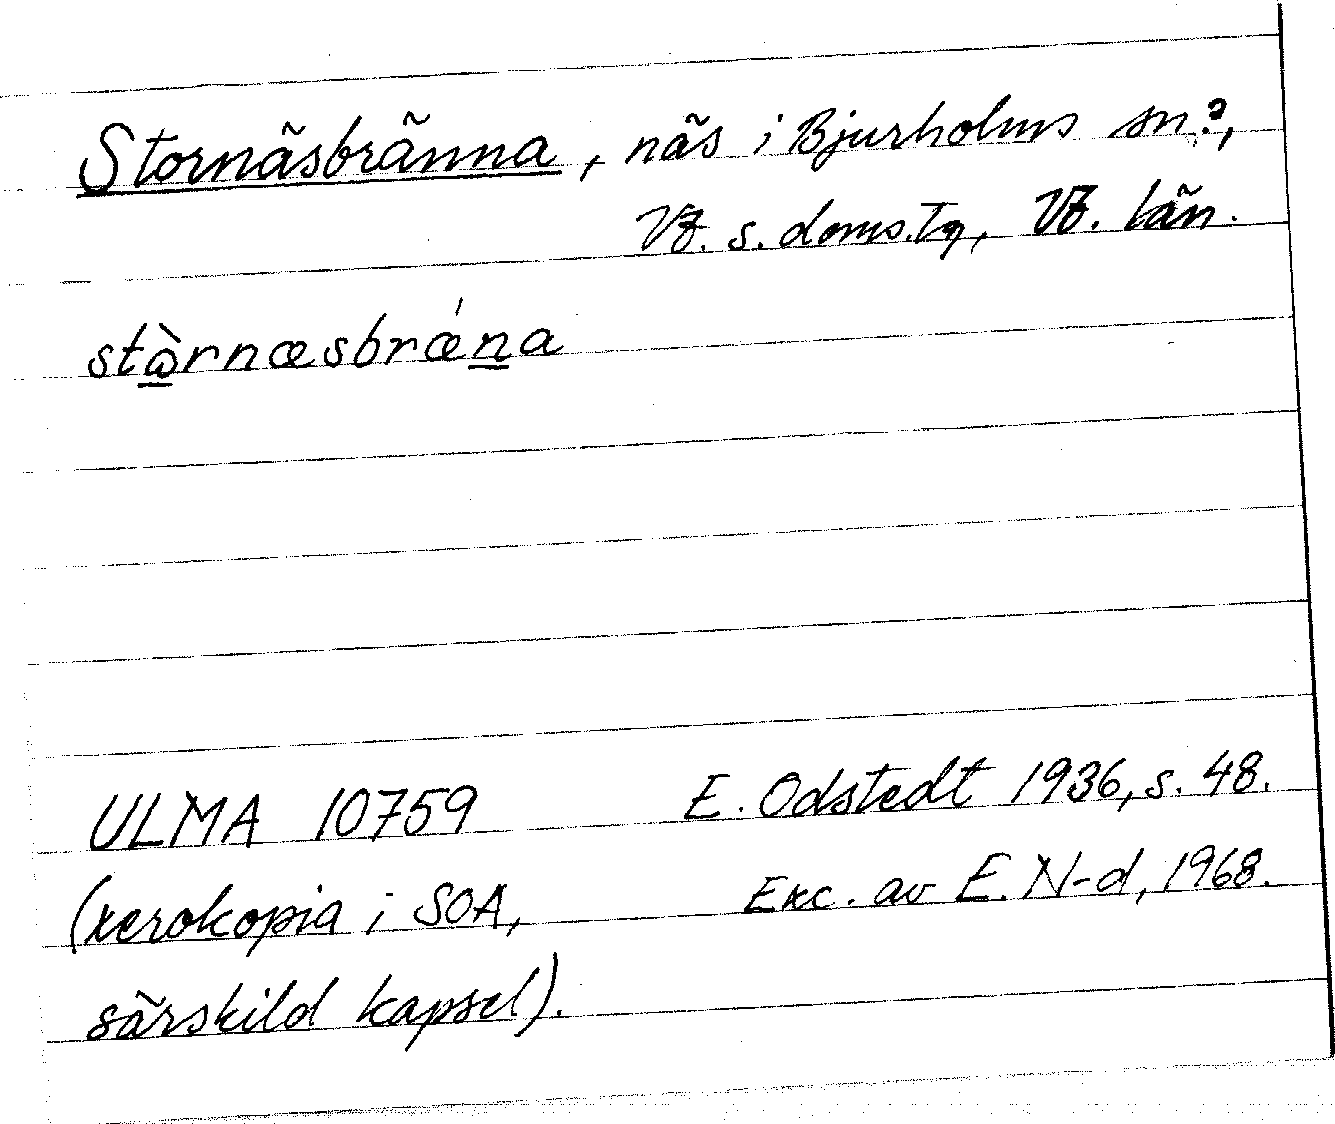 Stornäsbränna, näs i Bjurholms sn?,
Vb. s. doms.tg, Vb. län.
stὼ̲rnæsbrǽn̲a
ULMA 10759 E. Odstedt 1936, s. 48.
(xerokopia i SOA, Exc. av E. N-d, 1968.
särskild kapsel).